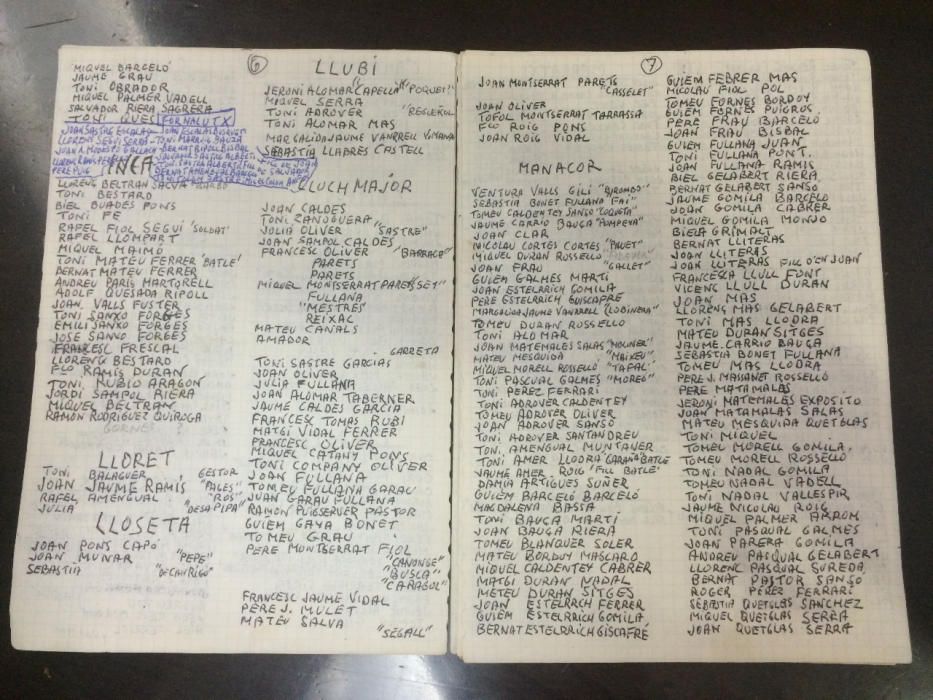 MIQUEL BARCELÓ
JAUME GRAU
TONI OBRADOR
MIQUEL PALMER VADELL
SALVADOR RIERA SAGRERA
TONI QUES
FORNALUTX
JOAN SASTRE ESCALAS
JOAN ESCALAS BUSQUETS
LLORENS SEGUI SERRA
BERNAT RIPOLL BISBAL
SALVADOR SASTRE ALBERTI
PERE PUIG
BERNAT AMENGUAL
INCA
LLORENÇ BELTRAN SALVA "BARBO"
TONI BESTARD
BIEL BUADES PONS
TONI FE
RAFEL FIOL SEGUI "SOLDAT"
RAFEL LLOMPART
MIQUEL MAIMÓ
TONI MATEU FERRER "BATLE"
BERNAT MATEU FERRER
ANDREU PARIS MARTORELL
ADOLF QUESADA RIPOLL
JOAN VALLS FUSTER
TONI SANXO FORGES
EMILI SANXO FORGES
JOSE SANXO FORGES
FRANCESC FRESCAL
LLORENÇ BESTARD
FCO RAMIS DURAN
TONI RUBIO ARAGON
JORDI SAMPOL RIERA
MIQUEL BELTRAN
RAMON RODRIGUEZ QUIROGA
GORNES
LLORET
TONI BALAGUER GESTOR
JOAN JAUME RAMIS "PALES"
RAFEL AMENGUAL "ROS"
JULIA "DESA PIPA"
LLOSETA
JOAN PONS CAPÓ
JOAN MUNAR "PEPE"
SEBASTIÀ "DE CAN RIGO"
6
LLUBÍ
JERONI ALOMAR CAPELLA "POQUET"
MIQUEL SERRA
TONI ADROVER "REGUEROL"
TONI ALOMAR MAS
MARGALIDA JAUME VANRRELL
SEBASTIÀ LLABRES CASTELL
LLUCH MAJOR
JOAN CALDES
TONI ZANOGUERA
JULIA OLIVER "SASTRE"
JOAN SAMPOL CALDES
FRANCESC OLIVER "BARRACA"
PARETS
PARETS
MIQUEL MONTSERRAT PARETS
FULLANA
"MESTRES"
REIXAC
MATEU CANALS
AMADOR
GARRETA
TONI SASTRE GARCIAS
JOAN OLIVER
JULIA FULLANA
JOAN ALOMAR TABERNER
JAUME CALDES GARCIA
FRANCESC TOMAS RUBI
MATGI VIDAL FERRER
FRANCESC OLIVER
MIQUEL CATANY PONS
TONI COMPANY OLIVER
JOAN FULLANA
TOMEU FULLANA GARAU
JUAN GARAU FULLANA
RAMON PUIGSERVER PASTOR
GUIEM GAYA BONET
TOMEU GRAU
PERE MONTSERRAT FIOL
"CANONGE"
"BUSCA"
"CARAGOL"
FRANCESC JAUME VIDAL
PERE J. MULET
MATEU SALVA
"SEGALL"
7
JOAN MONTSERRAT PARETS "CASSELET"
JOAN OLIVER
TOFOL MONTSERRAT TARRASSA
FCO ROIG PONS
JOAN ROIG VIDAL
MANACOR
VENTURA VALLS GILI "BIRONDO"
SEBASTIA BONET FULLANA FAI"
TOMEU CALDENTEY SANSO "COQUETA"
JAUME CARRIO BAUÇA "POMPEYA"
JOAN CLAR
NICOLAU CORTES CORTES "PAUET"
MIQUEL DURAN ROSSELLO
JOAN FRAU "GALLET"
GUIEM GALMES MARTI
JOAN ESTELRRICH GOMILA
PERE ESTELRRICH GUISCAFRE
MARGALIDA JAUME VANRRELL (LLOBINERA)
TOMEU DURAN ROSSELLO
TONI ALOMAR
JOAN MATEMALES SALAS "MOLINER"
MATEU MESQUIDA "MAIXEU"
MIQUEL MORELL ROSSELLO "TAFAL"
TONI PASCUAL GALMES "MOREO"
TONI PEREZ FERRARI
TONI ADROVER CALDENTEY
TOMEU ADROVER OLIVER
JOAN ADROVER SANSO
TONI ADROVER SANTANDREU
TONI AMENGUAL MUNTANER
TONI AMER LLODRA "GARANA" BATLE
JAUME AMER ROIG "FILL BATLE"
DAMIÀ ARTIGUES SUÑER
GUIEM BARCELÓ BARCELÓ
MAGDALENA BASSA
TONI BAUÇA MARTI
JOAN BAUÇA RIERA
TOMEU BLANQUER SOLER
MATEU BORDOY MASCARO
MIQUEL CALDENTEY CABRER
MATGI DURAN NADAL
METEU DURAN SITGES
JOAN ESTELRRICH FERRER
GUIEM ESTELRRICH GOMILA
BERNAT ESTELRRICH GISCAFRÉ
GUIEM FEBRER MAS
NICOLAU FIOL POL
TOMEU FORNES BORDOY
GUIEM FORNES PUIGROS
PERE FRAU BARCELÓ
JOAN FRAU BISBAL
GUIEM FULLANA JUAN
TONI FULLANA PONT.
JOAN FULLANA RAMIS
BIEL GELABERT RIERA
BERNAT GELABERT SANSO
JAUME GOMILA BARCELO
JOAN GOMILA CABRER
MIQUEL GOMILA MONJO
BIEL GRIMALT
BERNAT LLITERAS
JOAN LLITERAS
JOAN LLITERAS FILL D'EN JUAN
FRANCESCA LLULL FONT
VICENÇ LLULL DURAN
JOAN MAS
LLORENÇ MAS GELABERT
TONI MAS LLODRA
MATEU DURAN SITGES
JAUME CARRIO BAUÇA
SEBASTIA BONET FULLANA
TOMEU MAS LLODRA
PERE J. MASSANET ROSSELLO
PERE MATAMALAS
JERONI MATEMALES EXPOSITO
JOAN MATAMALAS SALAS
MATEU MESQUIDA QUETGLAS
TONI MIQUEL
TOMEU MORELL GOMILA
TOMEU MORELL ROSSELLO
TONI NADAL GOMILA
TOMEU NADAL VADELL
TONI NADAL VALLESPIR
JAUME NICOLAU ROIG
MIQUEL PALMER ARROM
TONI PASQUAL GALMES
JOAN PARERA GOMILA
ANDREU PASQUAL GELABERT
LLORENÇ PASQUAL SUREDA
BERNAT PASTOR SANSO
ROGER PEREZ FERRARI
SEBASTIA QUETGLAS SANCHEZ
MIQUEL QUETGLAS SERRA
JOAN QUETGLAS SERRA